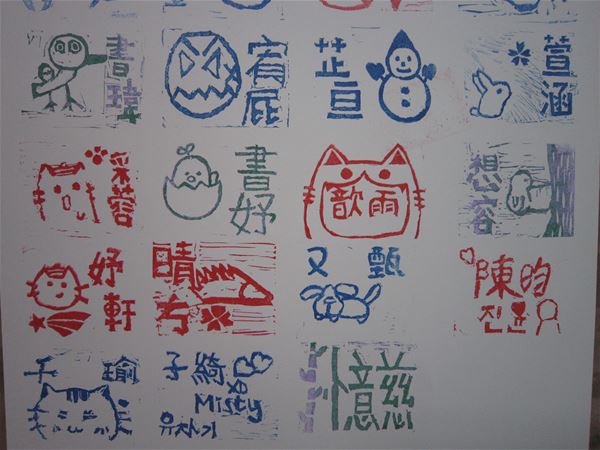 書瑋
賓屁
芷亘
萱涵
采蓉
書妤
歆雨
想容
妤軒
晴勻
又甄
陳昀
진윤
千瑜
子綺
Misty
유자기
慈憶